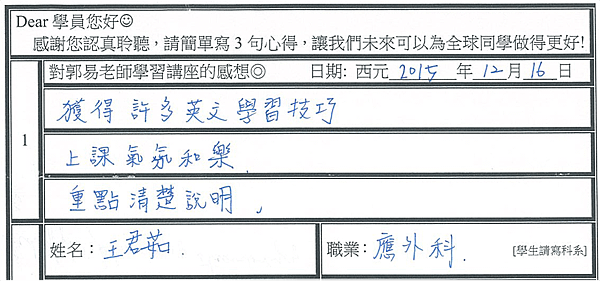 Dear 學員您好☺
感謝您認真聆聽，請簡單寫 3 句心得，讓我們未來可以為全球同學做得更好!
對郭易老師學習講座的感想◎ 日期: 西元 2015 年 12 月 16 日
1
獲得許多英文學習技巧
上課氣氛和樂
重點清楚說明,
姓名: 王君茹. 職業: 應外科. [學生請寫科系]